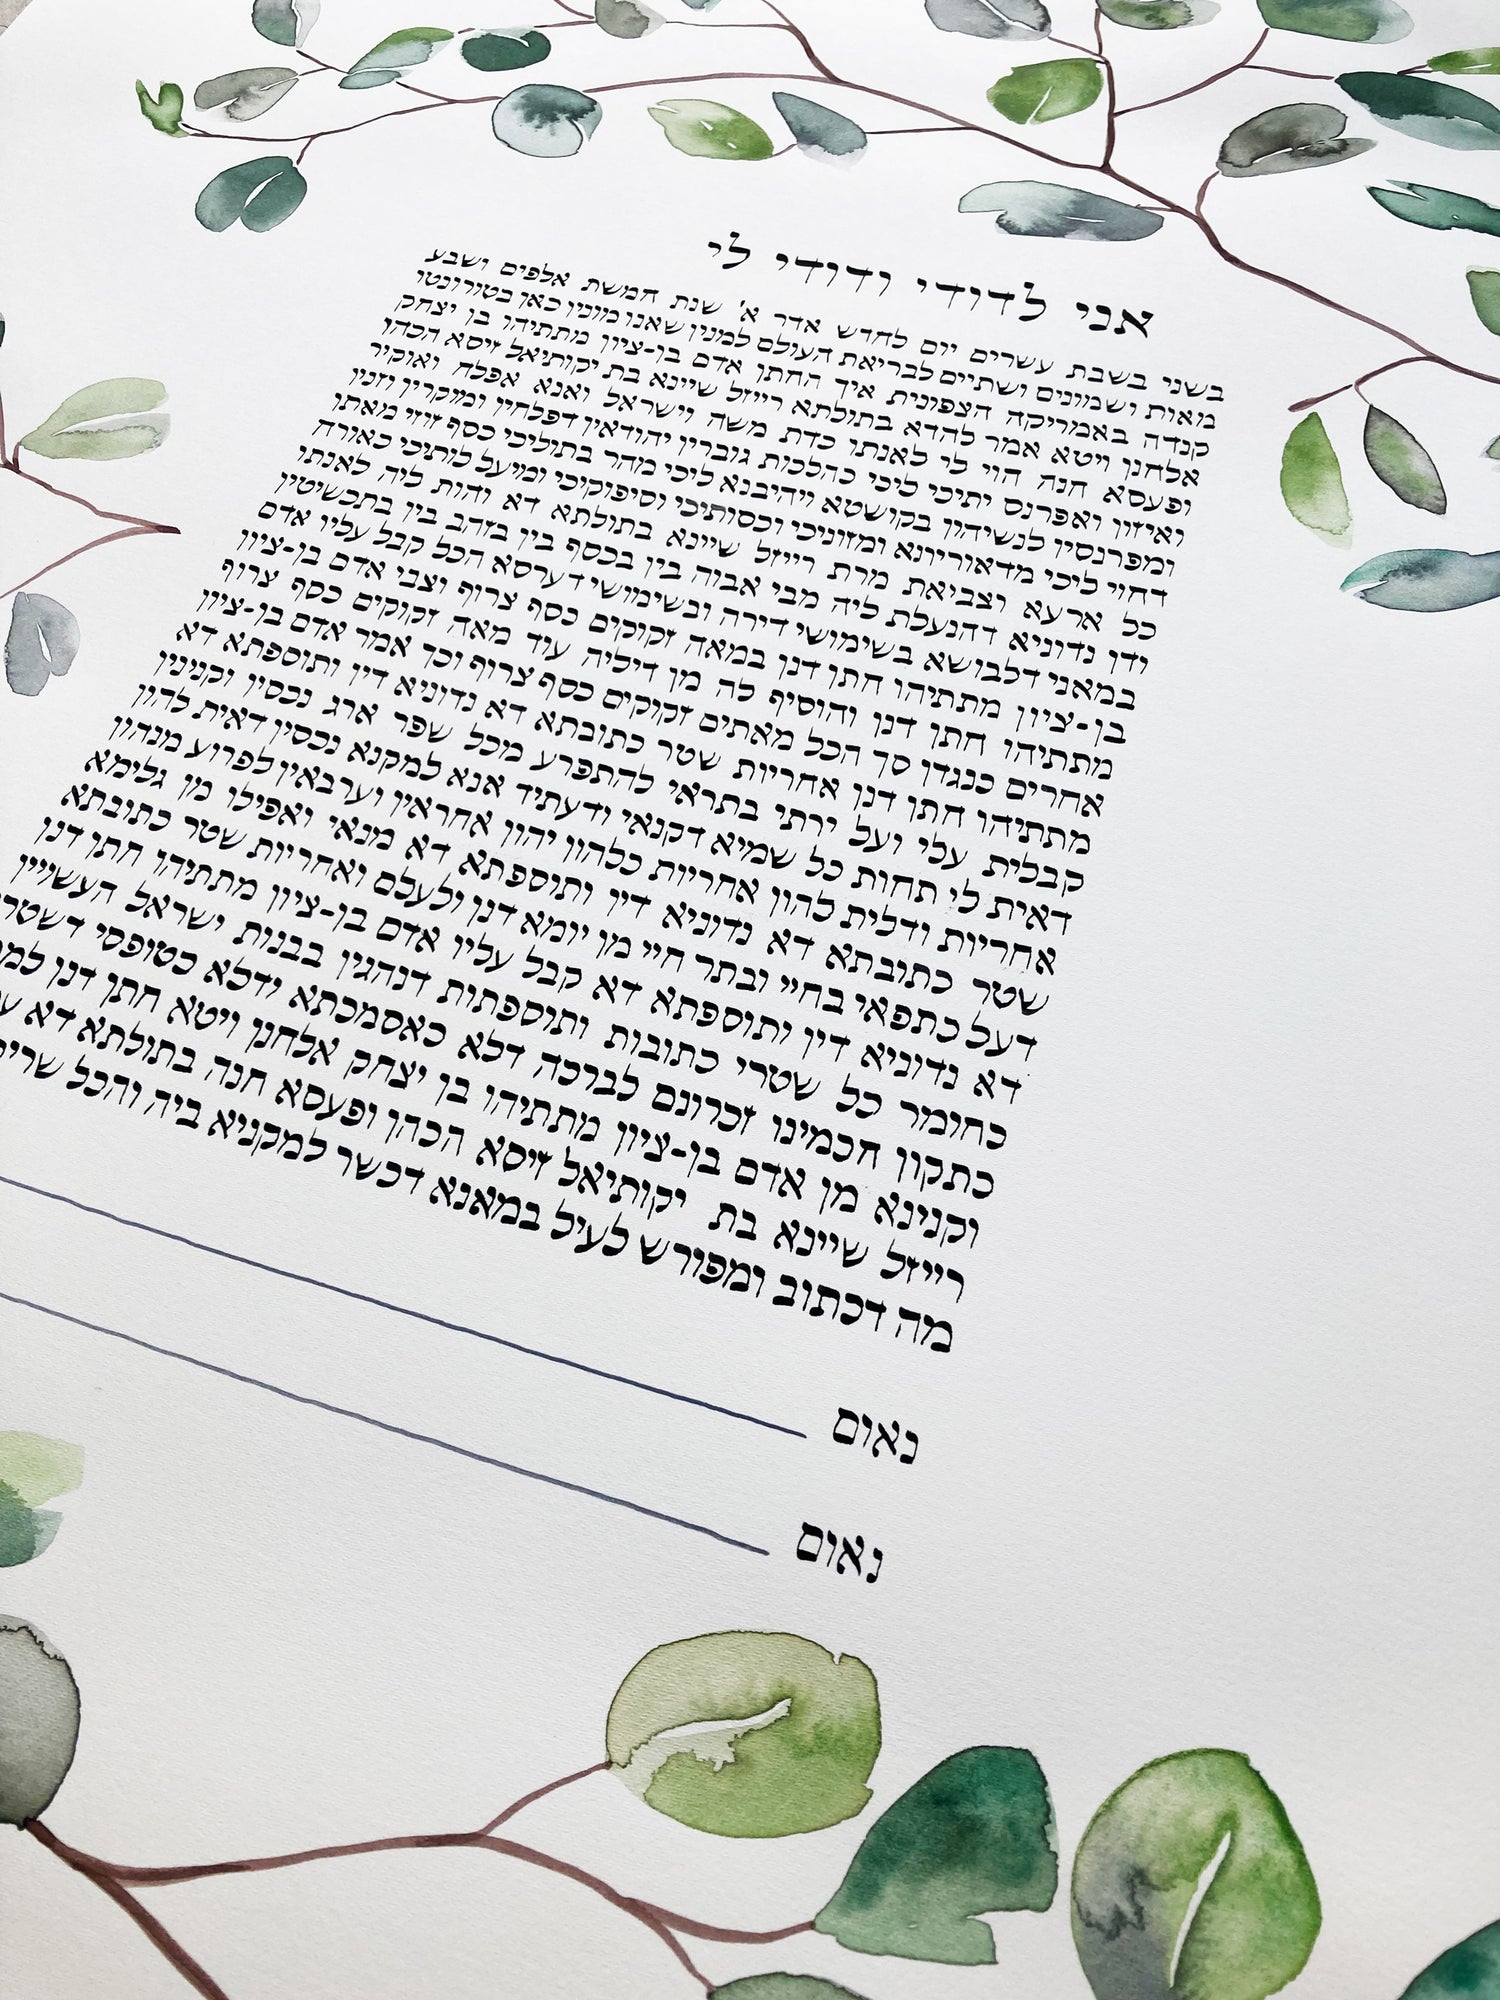 אני לדודי ודודי לי
בשני בשבת עשרים יום לחדש אדר א' שנת חמשת אלפים ושבע
מאות ושמונים ושתיים לבריאת העולם למנין שאנו מונין כאן בטורונטו
קנדה באמריקה הצפונית איך החתן אדם בן-ציון מתתיהו בן יצחק
אלחנן ויטא אמר להדא בתולתא רייזל שיינא בת יקותיאל זיסא הכהן
ופעסא חנה הוי לי לאנתו כדת משה וישראל ואנא אפלח ואוקיר
ואיזון ואפרנס יתיכי ליכי כהלכות גוברין יהודאין דפלחין ומוקרין וזנין
ומפרנסין לנשיהון בקושטא ויהיבנא ליכי מהר בתוליכי כסף זוזי מאתן
דחזי ליכי מדאורייתא ומזוניכי וכסותיכי וסיפוקיכי ומיעל לותיכי כאורח
כל ארעא וצביאת מרת רייזל שיינא בתולתא דא והות ליה לאנתו
ודן נדוניא דהנעלת ליה מבי אבוה בין בכסף בין בזהב בין בתכשיטין
במאני דלבושא בשימושי דירה ובשימושי דערסא הכל קבל עליו אדם
בן-ציון מתתיהו חתן דנן במאה זקוקים כסף צרוף וצבי אדם בן-ציון
מתתיהו חתן דנן והוסיף לה מן דיליה עוד מאה זקוקים כסף צרוף
אחרים כנגדן סך הכל מאתים זקוקים כסף צרוף וכך אמר אדם בן-ציון
מתתיהו חתן דנן אחריות שטר כתובתא דא נדוניא דין ותוספתא דא
קבלית עלי ועל ירתי בתראי להתפרע מכל שפר ארג נכסין וקנינין
דאית לי תחות כל שמיא דקנאי ודעתיד אנא למקנא נכסין דאית להון
אחריות ודלית להון אחריות כלהון יהון אחראין וערבאין לפרוע מנהון
שטר כתובתא דא נדוניא דין ותוספתא דא מנאי ואפילו מן גלימא
דעל כתפאי בחיי ובתר חיי מן יומא דנן ולעלם ואחריות שטר כתובתא
דא נדוניא דין ותוספתא דא קבל עליו אדם בן-ציון מתתיהו חתן דנן
כחומר כל שטרי כתובות ותוספתות דנהגין בבנות ישראל העשויין
כתקון חכמינו זכרונם לברכה דלא כאסמכתא ודלא כטופסי דשטר
וקנינא מן אדם בן-ציון מתתיהו בן יצחק אלחנן ויטא חתן דנן
רייזל שיינא בת יקותיאל זיסא הכהן ופעסא חנה בתולתא דא
מה דכתוב ומפורש לעיל במאנא דכשר למקניא ביה והכל
נאום
נאום